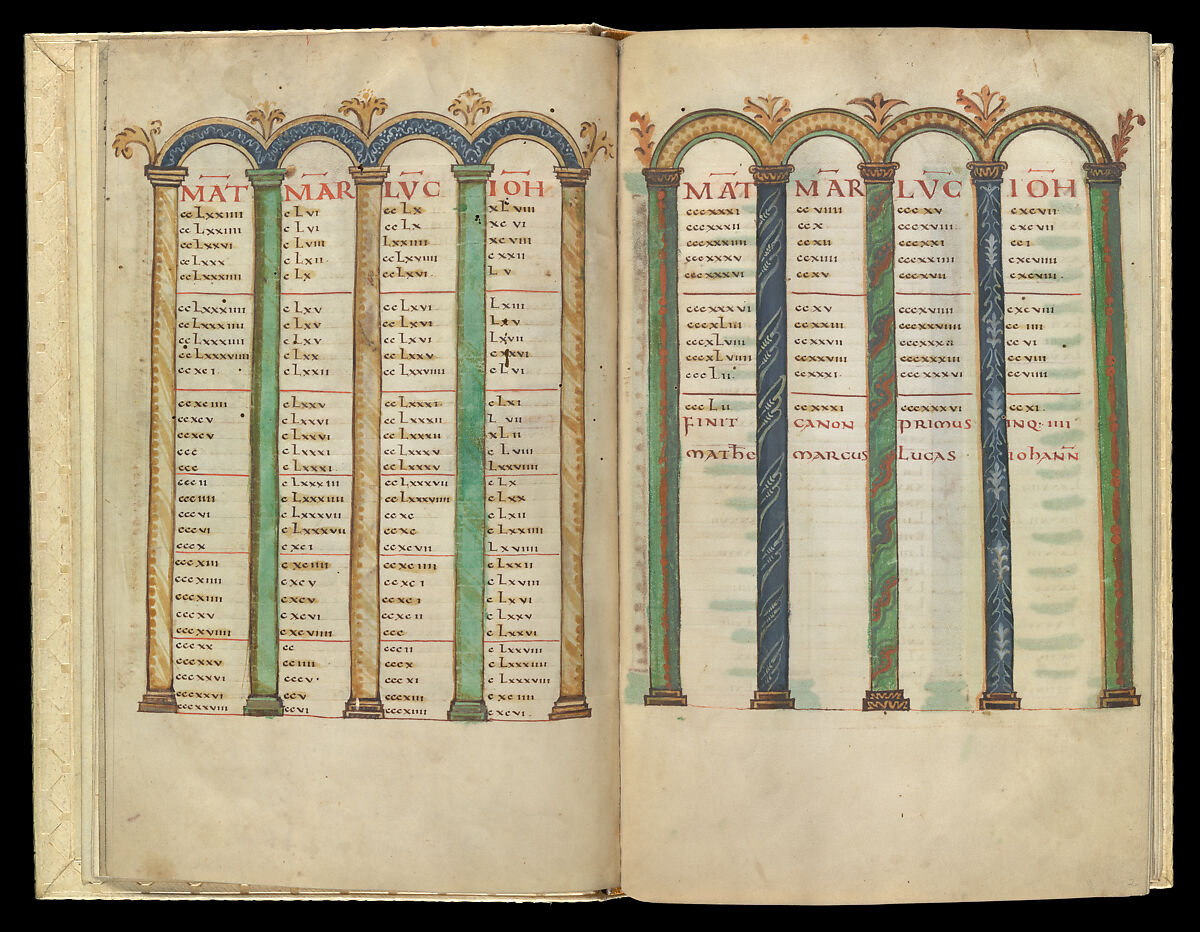 MAT MAR LVC IOH
ccLxxiiii cLvi ccLx xLviii
ccLxxiiii cLvi ccLx xcvi
ccLxxvi cLviii Lxxiiii xcviii
cLxxx cLxii ccLxviiii cxxii
ccLxxxiiii cLx ccLxvi Lv
ccLxxxiiii cLxv ccLxvi Lxiii
ccLxxxiiii cLxv ccLxvi Lxv
ccLxxxiiii cLxv ccLxvi Lxvii
ccLxxxviiii cLxx ccLxxv cxxvi
ccxci cLxxii ccLxxviiii cLvi
ccxciiii cLxxv ccLxxxi cLxi
ccxcv cLxxvi ccLxxxii Lvii
ccxcv cLxxvi ccLxxxii xLii
ccc cLxxxi ccLxxxv cLviii
ccc cLxxxi ccLxxxv Lxxviiii
cccii cLxxxiii ccLxxxvii cLx
ccciiii cLxxxiiii ccLxxxviiii cLxx
cccvi cLxxxvii ccxc cLxii
cccvi cLxxxvii ccxc cLxxiiii
cccx cxci ccxcvii Lxviiii
cccxiii cxciiii ccxciiii cLxxii
cccxiiii cxcv ccxci cLxviii
cccxiiii cxcv ccxci cLxvi
cccxv cxcvi ccxcii cLxxv
cccxviiii cxcviiii ccc cLxxvi
cccxx cc cccii cLxxviii
cccxxv cciiii cccx cLxxxiiii
cccxxvi cccv cccxi cLxxxviii
cccxxvi ccv cccxiii cxciiii
cccxxviii ccvi cccxiiii cxcvi
MAT MAR LVC IOH
cccxxxi ccviiii cccxv cxcvii
cccxxxii ccx cccxviii cxcvii
cccxxxiiii ccxii cccxxi cci
cccxxxv ccxiiii cccxxiiii cxcviiii
cccxxxvi ccxv cccxvii cxcviii
cccxxxvi ccxv cccxviiii cxcviii
cccxLiii ccxxiii cccxxviiii cciiii
cccxLviii ccxxvii cccxxxii ccvi
cccxLviiii ccxxviii cccxxxiii ccviii
cccLii ccxxxi cccxxxvi ccviiii
cccLii ccxxxi cccxxxvi ccxi
FINIT CANON PRIMUS INQ: IIII
MATHE MARCUS LUCAS IOHANN